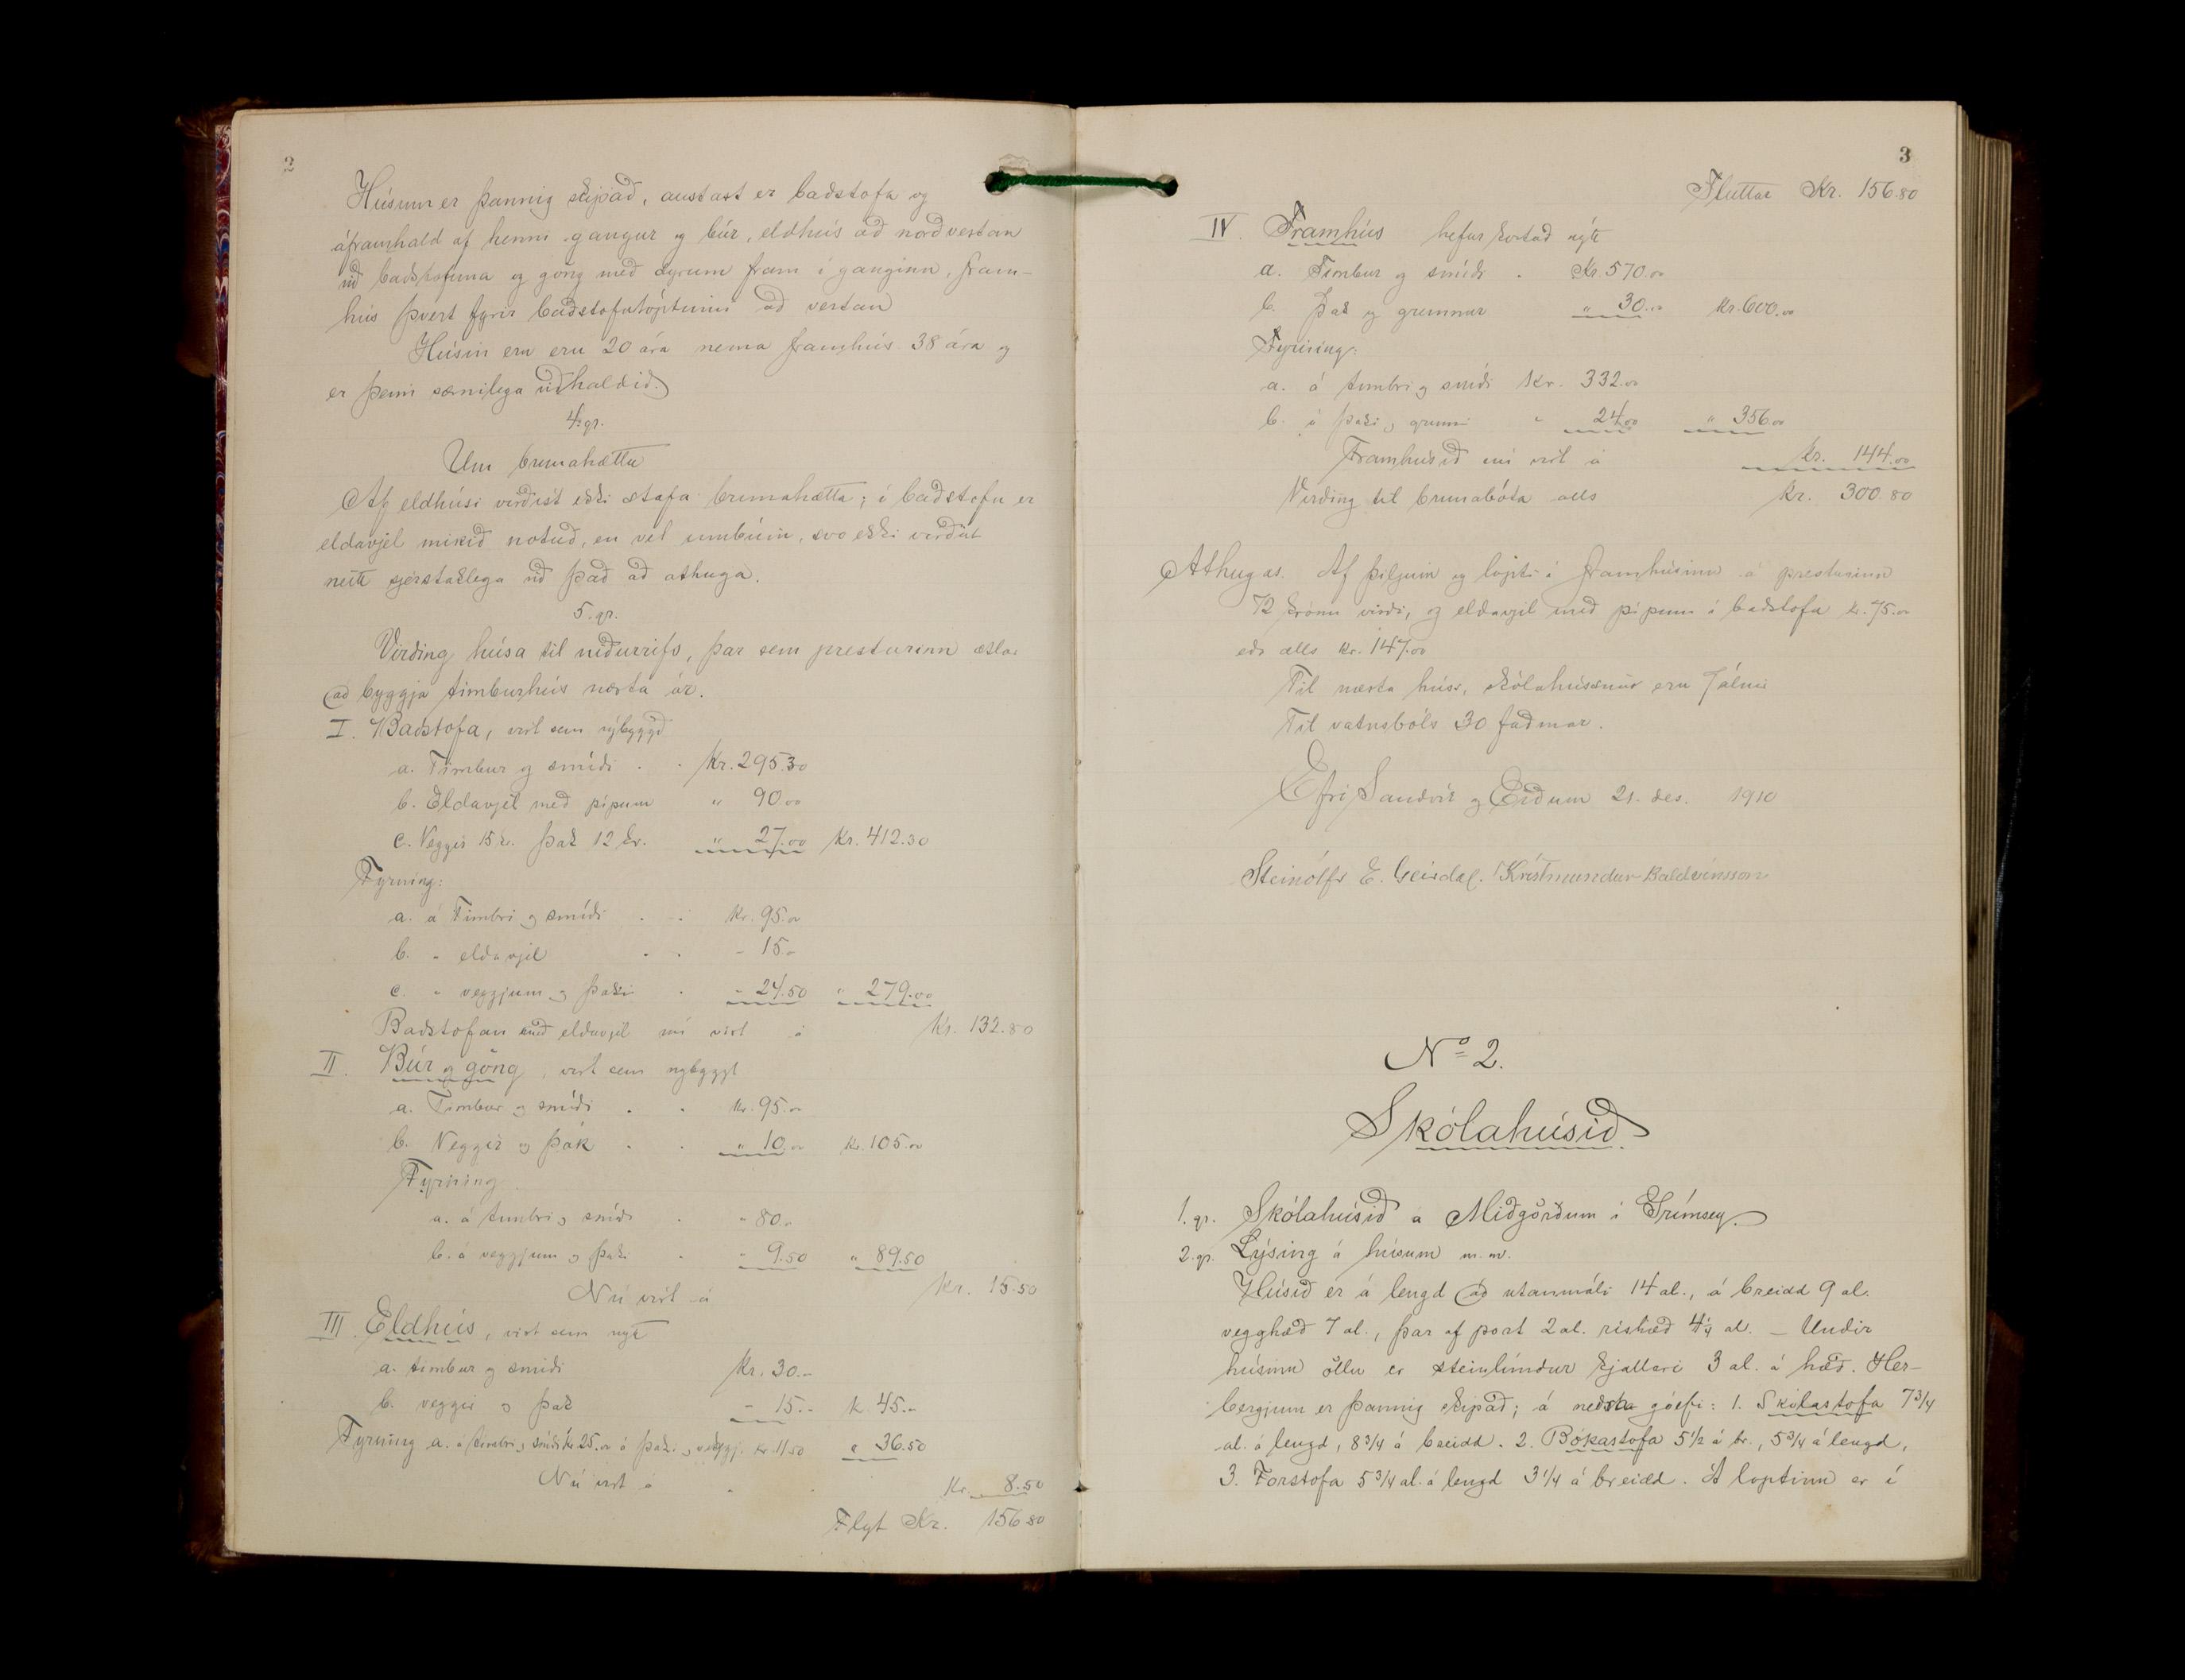 2
Húsum er þannig skipað, austast er baðstofa og
áframhald af henni gangur og búr, eldhús að norðvestan
við baðstofuna og göng með dyrum fram í ganginn, fram-
hús þvert fyrir baðstofutóptinni að vestan
Húsin eru eru 20 ára nema framhús 38 ára og
er þeim sæmilega viðhaldið.
4. gr.
Um brunahættu
Af eldhúsi virðist ekki stafa brunahætta; í baðstofu er
eldavjel mikið notuð, en vel umbúin, svo ekki virðist
neitt sjerstaklega við það að athuga.
5. gr.
Virðing húsa til niðurrifs, þar sem presturinn ætlar
að byggja timburhús næsta ár.
I. Baðstofa, virt sem nýbyggð
a. Timbur og smíði . . Kr. 295.30
b. Eldavjel með pípum " 90.00
c. Veggir 15 k. Þak 12 kr. " 27.00 Kr. 412.30
Fyrning:
a. á Timbri og smíði . . Kr. 95.00
b. " eldavjel . . - 15.-
c. " veggjum og þaki . " 24.50 " 279.00
Baðstofan með eldavjel nú virt á Kr. 132.80
II. Búr og göng, virt sem nybyggt
a. Timbur og smíði . . Kr. 95.00
b. Veggir og Þak . . " 10.00 Kr. 105.00
Fyrning
a. á timbri og smíði . " 80.-
b. á veggjum og þaki . " 9.50 " 89.50
Nú virt á Kr. 15.50
III. Eldhús, virt sem nytt
a. timbur og smíði Kr. 30.-
b. veggir og þak - 15.- K. 45.-
Fyrning a. á timbri og smíði kr 25.00 á þaki og veggj. kr. 11.50 " 36.50
Nú virt á . Kr. 8.50
Flyt Kr. 156.80
3
Fluttar Kr. 156.80
IV. Framhús hefur kostað nýtt
a. Timbur og smíði . Kr. 570.00
b. Þak og grunnur " 30.00 Kr. 600.00
Fyrning:
a. á timbri og smíði Kr. 332.00
b. á þaki og grunni " 24.00 " 356.00
Framhúsið nú virt á Kr. 144.00
Virðing til brunabóta alls Kr. 300.80
Athugas. Af þiljum og lopti í framhúsinu á presturinn
72 króna virði, og eldavjel með pípum í baðstofu kr. 75.00
eða alls kr. 147.00
Til næsta húss, skólahússins eru 7 álnir
Til vatnsbóls 30 faðmar.
Efri Sandvík og Eiðum 21. des. 1910
Steinólfr E. Geirdal. Kristmundur Baldvinsson
No 2.
Skólahúsið
1. gr. Skólahúsið á Miðgörðum í Grímsey.
2. gr. Lýsing á húsum m. m.
Húsið er á lengd að utanmáli 14 al., á breidd 9 al.
vegghæð 7 al., þar af port 2 al. rishæð 4 1/4 al. – Undir
húsinu öllu er steinlímdur kjallari 3 al. á hæð. Her-
bergjum er þannig skipað; á neðsta gólfi: 1. Skólastofa 7 3/4
al. á lengd, 8 3/4 á breidd. 2. Bókastofa 5 1/2 á br., 5 3/4 á lengd,
3. Forstofa 5 3/4 al. á lengd 3 1/4 á breidd. Á loptinu er í